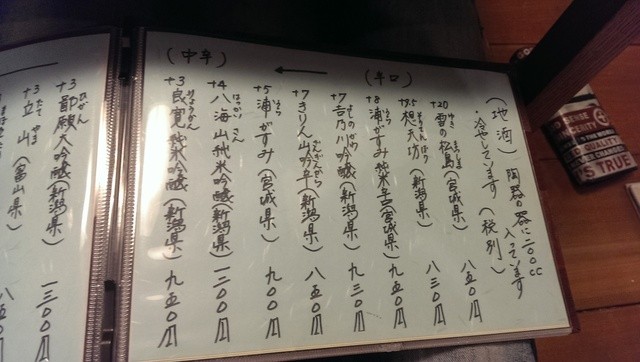 (地酒) 陶器の器に二〇〇cc
入っています
・冷やしています (税別)
(辛口)
(中辛)
+20 雪の松島 (宮城県) 八五〇円
+9.5 想天坊 (新潟県) 八三〇円
+8 浦がすみ 純米辛口 (宮城県) 九五〇円
+7 吉乃川吟醸 (新潟県) 九三〇円
+7 きりん山吟辛 (新潟県) 八五〇円
+5 浦がすみ (宮城県) 九〇〇円
+4 八海山純米吟醸 (新潟県) 一二〇〇円
+3 良寛 純米吟醸 (新潟県) 九五〇円
+3 大吟醸 (新潟県) 一三〇〇円
+3 立山 (富山県) 八五
QUALITY
IS TRUE